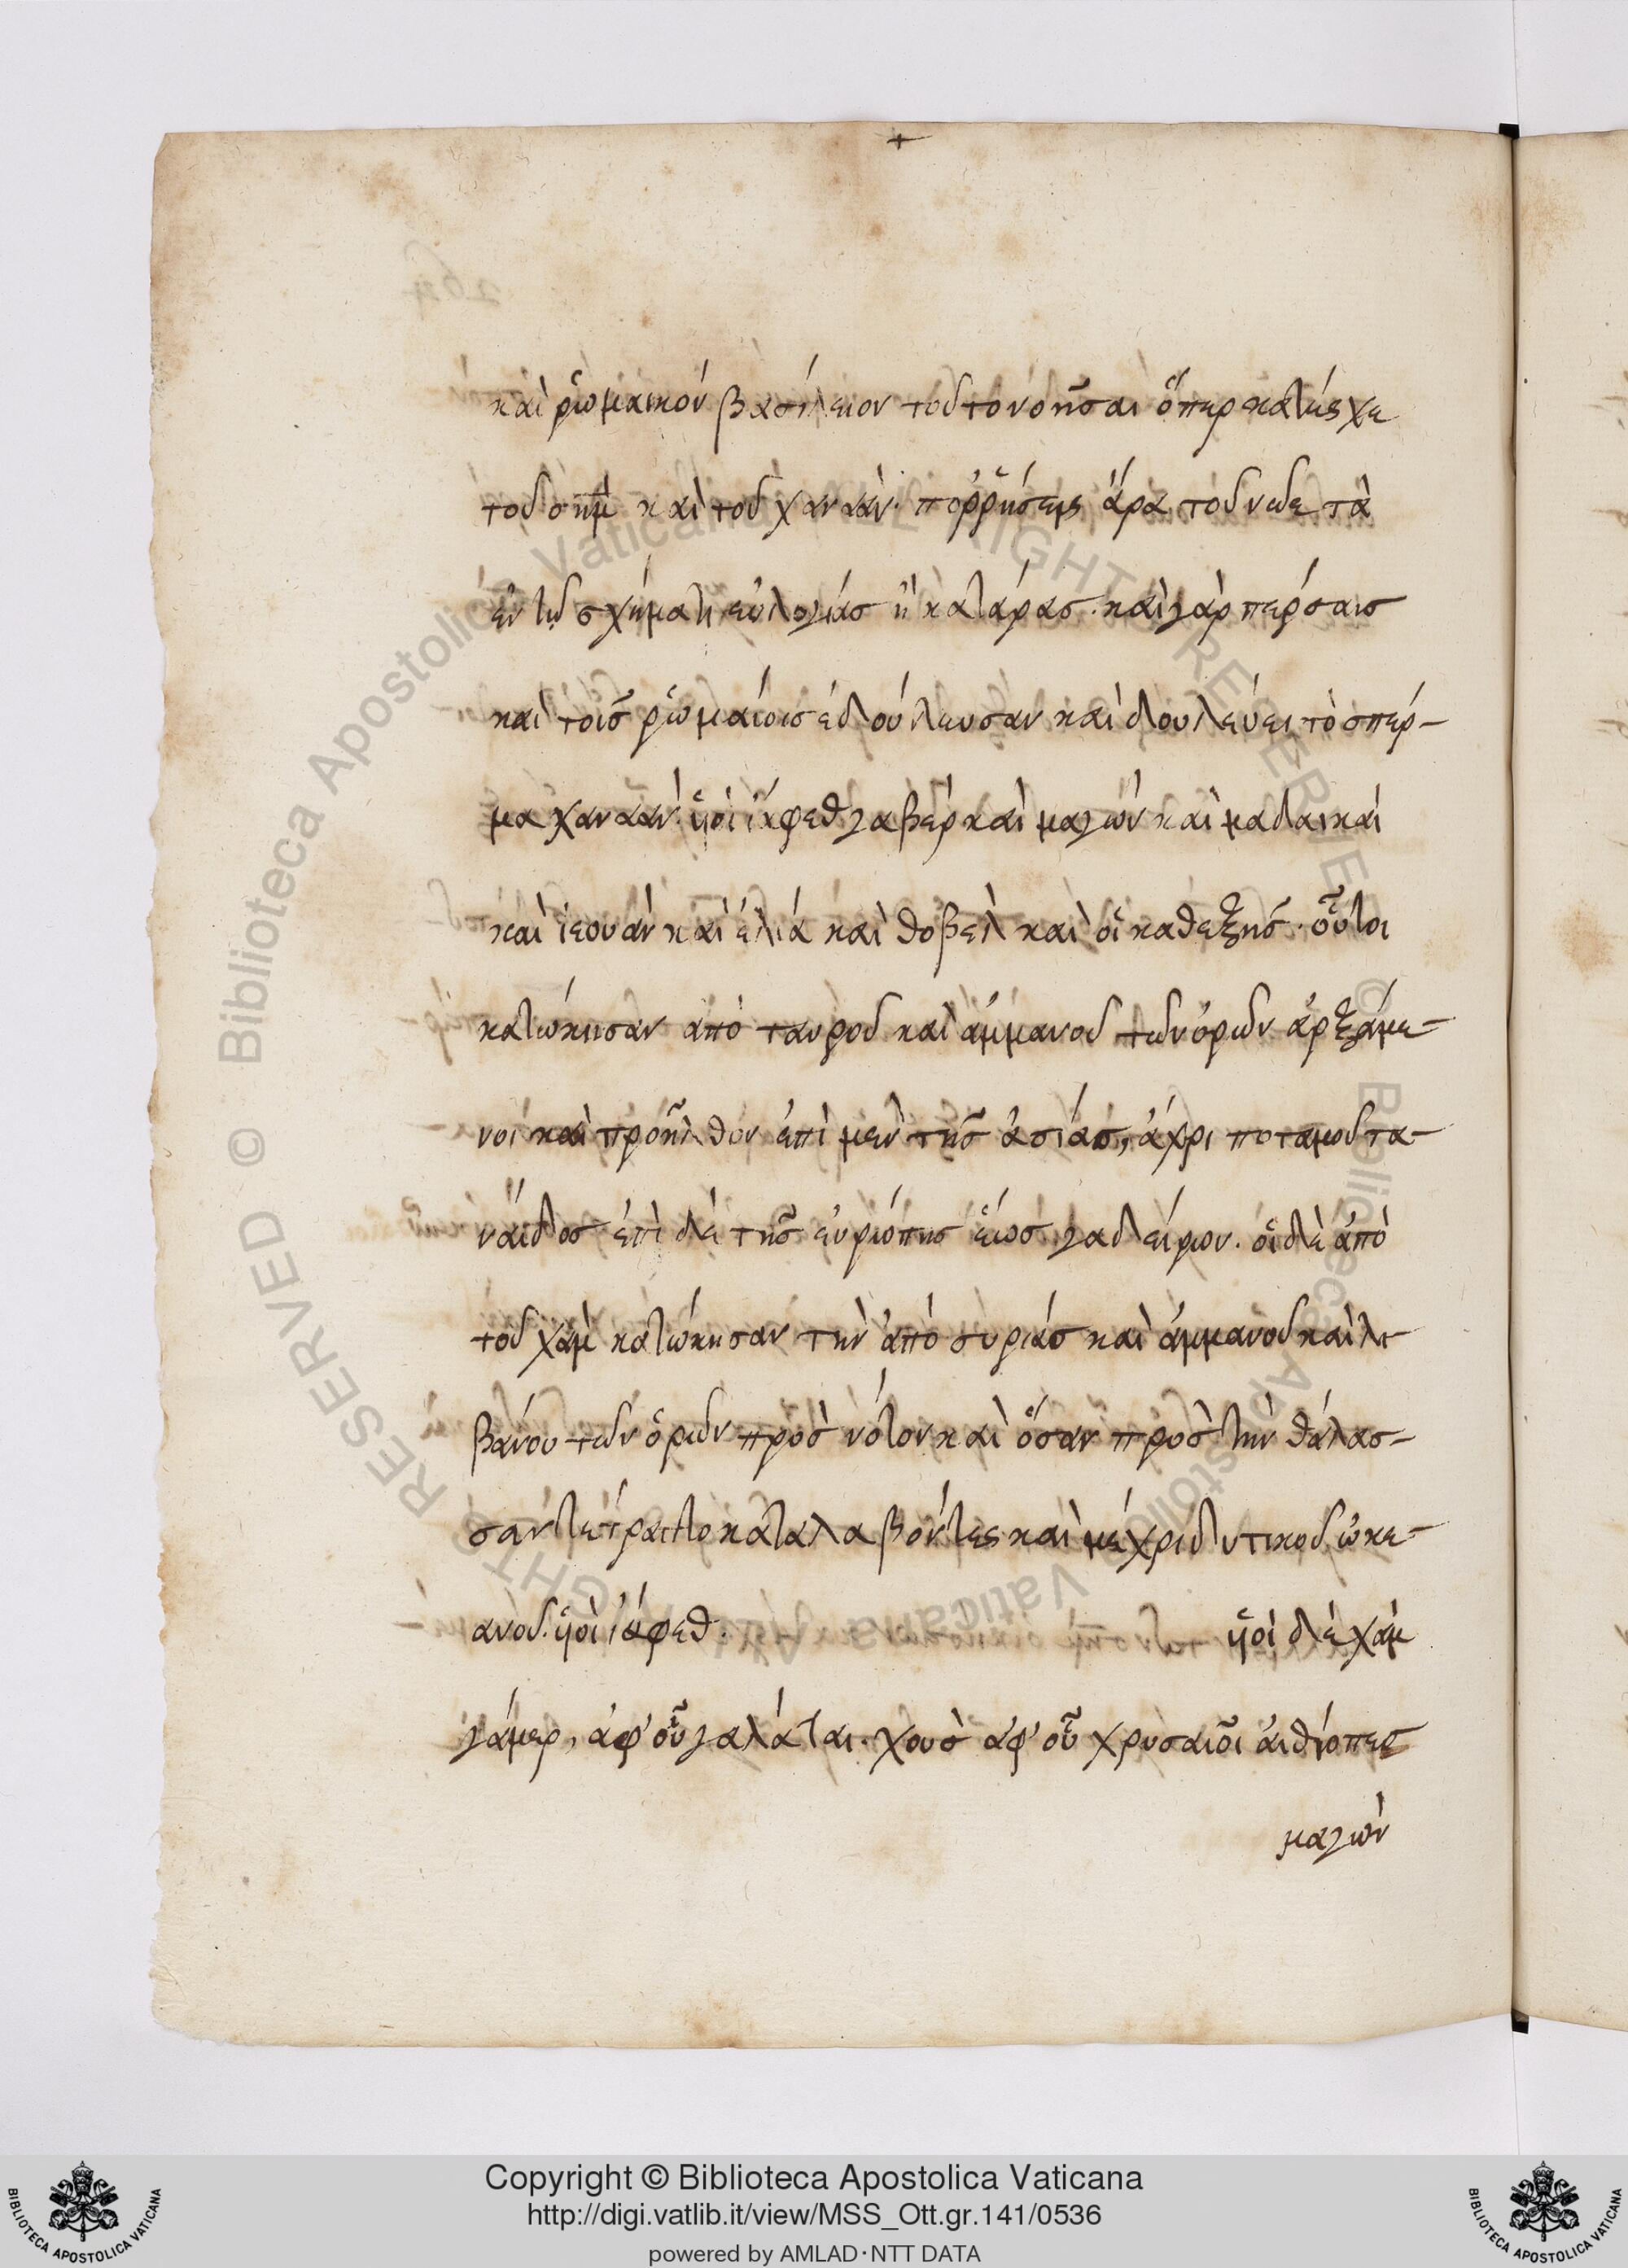 καὶ ῥωμαικόν βασίλειον τοῦτο νοῆσαι ὅπερ κατέσχε
τοῦ σήμ καὶ τοῦ χαναάν. πορρήσεις ἄρα τοῦ νῶε τὰ
ἐν τῷ σχήματι εὐλογίας ἢ κατάρας. καὶ γὰρ πέρσαις
καὶ τοῖς ῥωμαίοις ἐδούλευσαν καὶ δουλεύει τὸ σπέρ-
μα χαναάν. ὑἱοὶ ἰάφεθ γαβέρ καὶ μαγὼν καὶ μαδαι καὶ
καὶ ἰεουὰν καὶ ἐλιά καὶ θοβελ καὶ οἱ καθεξῆς. οὗτοι
κατώκησαν ἀπὸ ταυροῦ καὶ ἀμμανοῦ τῶν ὀρῶν ἀρξάμε-
νοι καὶ προῆλθον ἐπὶ μὲν τῆς ἀσίας, ἄχρι ποταμοῦ τα-
νάϊδος ἐπὶ δὲ τῆς εὐρώπης ἕως γαδείρων. οἱ δὲ ἀπὸ
τοῦ χὰμ κατώκησαν τὴν ἀπὸ συρίας καὶ ἀμμανοῦ καὶ λι-
βάνου τῶν ὀρῶν πρὸς νότον καὶ ὅσαν πρὸς τὴν θάλασ-
σαν τέτραπτο καταλαβόντες καὶ μέχρι δυτικοῦ ὠκε-
ανοῦ. ὑἱοὶ ἰάφεθ. ὑἱοὶ δὲ χάμ
γάμερ, ἀφ' οὗ γαλάται. χοὺσ ἀφ' οὗ χρυσαῖοι αἰθίοπες
μαγὼν
Copyright © Biblioteca Apostolica Vaticana
http://digi.vatlib.it/view/MSS_Ott.gr.141/0536
powered by AMLAD·NTT DATA